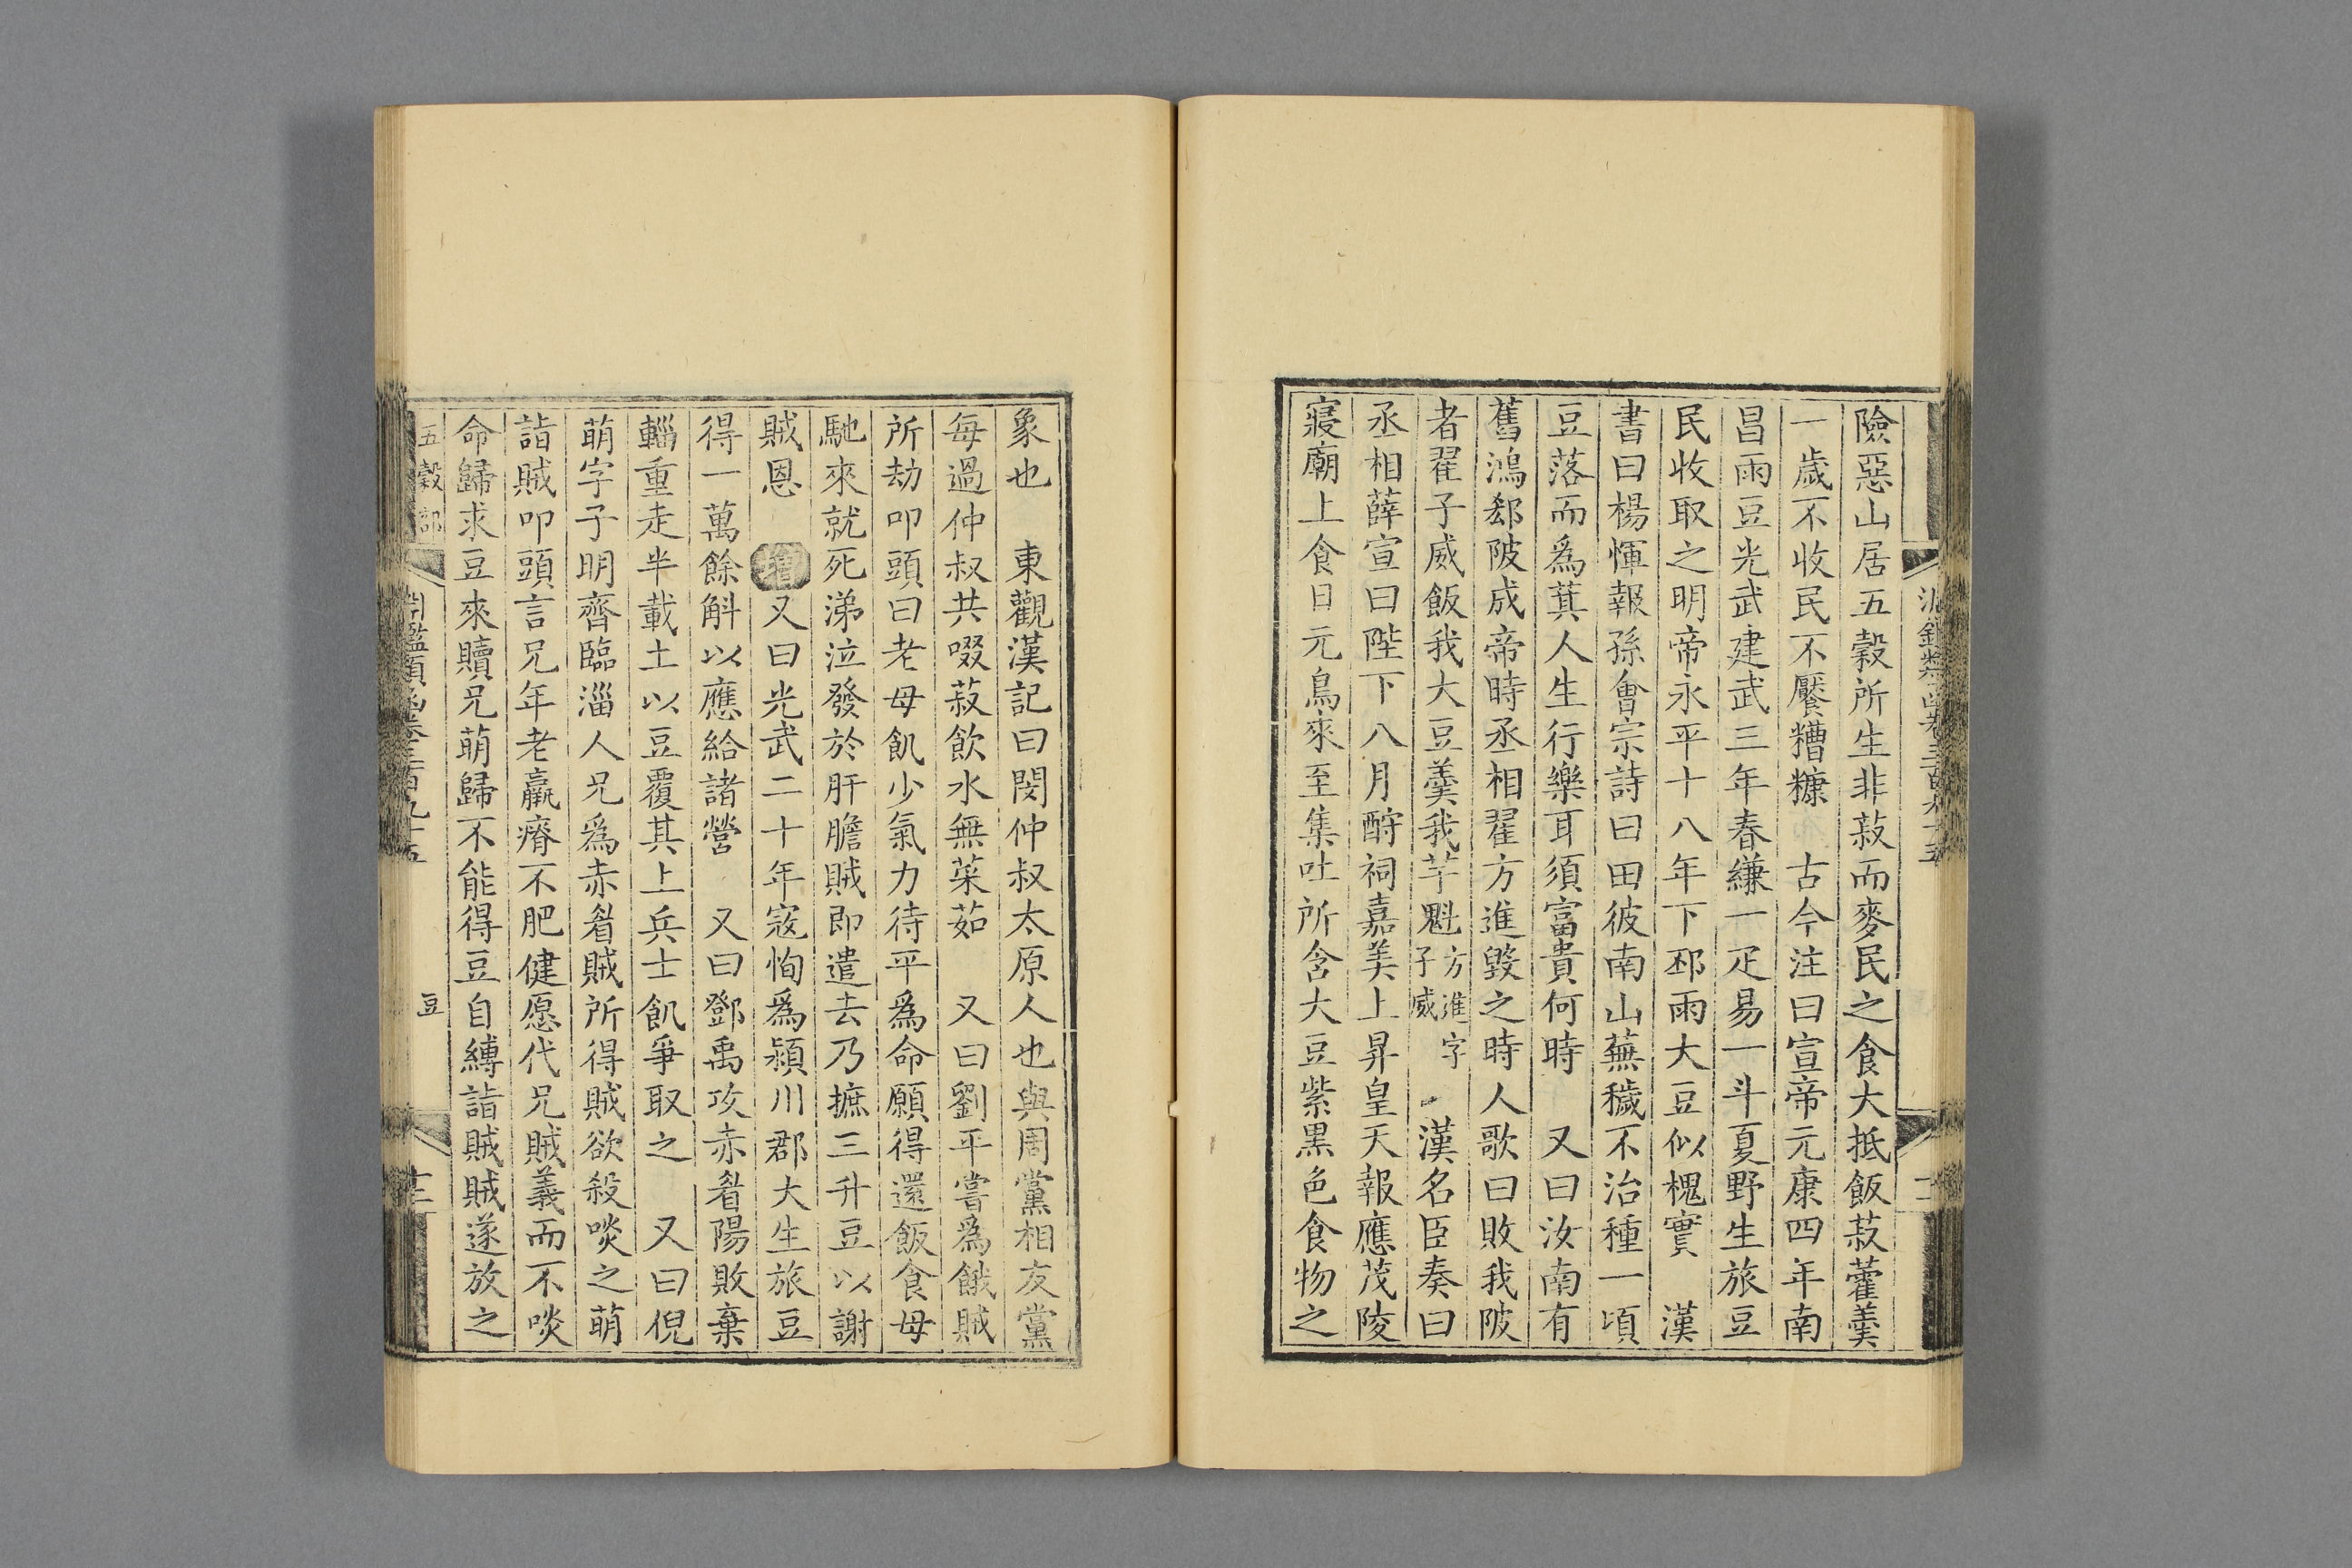 淵鑑類函卷三百九十五
險惡山居五穀所生非菽而麥民之食大抵飯菽藿羹
一歲不收民不饜糟糠　古今注曰宣帝元康四年南
昌雨豆光武建武三年春縑一疋易一斗夏野生旅豆
民收取之明帝永平十八年下邳雨大豆似槐實　漢
書曰楊惲報孫會宗詩曰田彼南山蕪穢不治種一頃
豆落而爲萁人生行樂耳須富貴何時　又曰汝南有
舊鴻郄陂成帝時丞相翟方進毀之時人歌曰敗我陂
者翟子威飯我大豆羹我芋魁方進字子威　漢名臣奏曰
丞相薛宣曰陛下八月酎祠嘉美上昇皇天報應茂陵
寢廟上食日元鳥來至集吐所含大豆紫黑色食物之
象也　東觀漢記曰閔仲叔太原人也與周黨相友黨
每過仲叔共啜菽飲水無菜茹　又曰劉平嘗爲餓賊
所劫叩頭曰老母飢少氣力待平爲命願得還飯食母
馳來就死涕泣發於肝膽賊即遣去乃摭三升豆以謝
賊恩　增又曰光武二十年寇恂爲潁川郡大生旅豆
得一萬餘斛以應給諸營　又曰鄧禹攻赤眉陽敗棄
輜重走半載土以豆覆其上兵士飢爭取之　又曰倪
萌字子明齊臨淄人兄爲赤眉賊所得賊欲殺啖之萌
詣賊叩頭言兄年老羸瘠不肥健愿代兄賊義而不啖
命歸求豆來贖兄萌歸不能得豆自縛詣賊賊遂放之
五穀部　淵鑑類函卷三百九十五　豆　十三